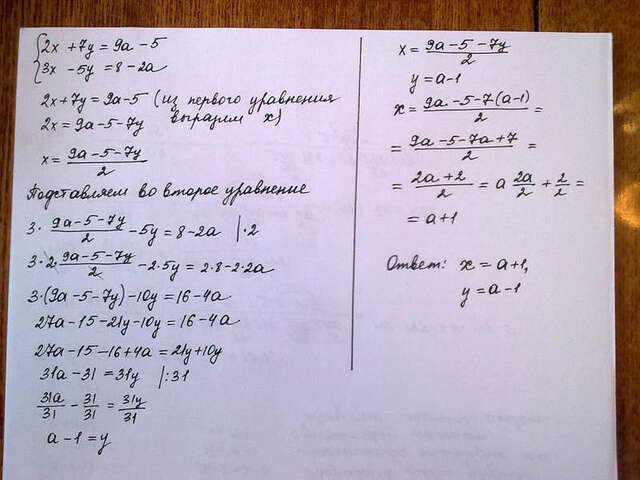 {2x + 7y = 9a - 5
3x - 5y = 8 - 2a
2x + 7y = 9a - 5 (из первого уравнения
2x = 9a - 5 - 7y выразим x)
x = (9a - 5 - 7y)/2
Подставляем во второе уравнение
3 · (9a - 5 - 7y)/2 - 5y = 8 - 2a | · 2
3 · 2 · (9a - 5 - 7y)/2 - 2 · 5y = 2 · 8 - 2 · 2a
3 · (9a - 5 - 7y) - 10y = 16 - 4a
27a - 15 - 21y - 10y = 16 - 4a
27a - 15 - 16 + 4a = 21y + 10y
31a - 31 = 31y | : 31
31a/31 - 31/31 = 31y/31
a - 1 = y
x = (9a - 5 - 7y)/2
y = a - 1
x = (9a - 5 - 7(a - 1))/2 =
= (9a - 5 - 7a + 7)/2 =
= (2a + 2)/2 = a 2a/2 + 2/2 =
= a + 1
Ответ: x = a + 1,
y = a - 1